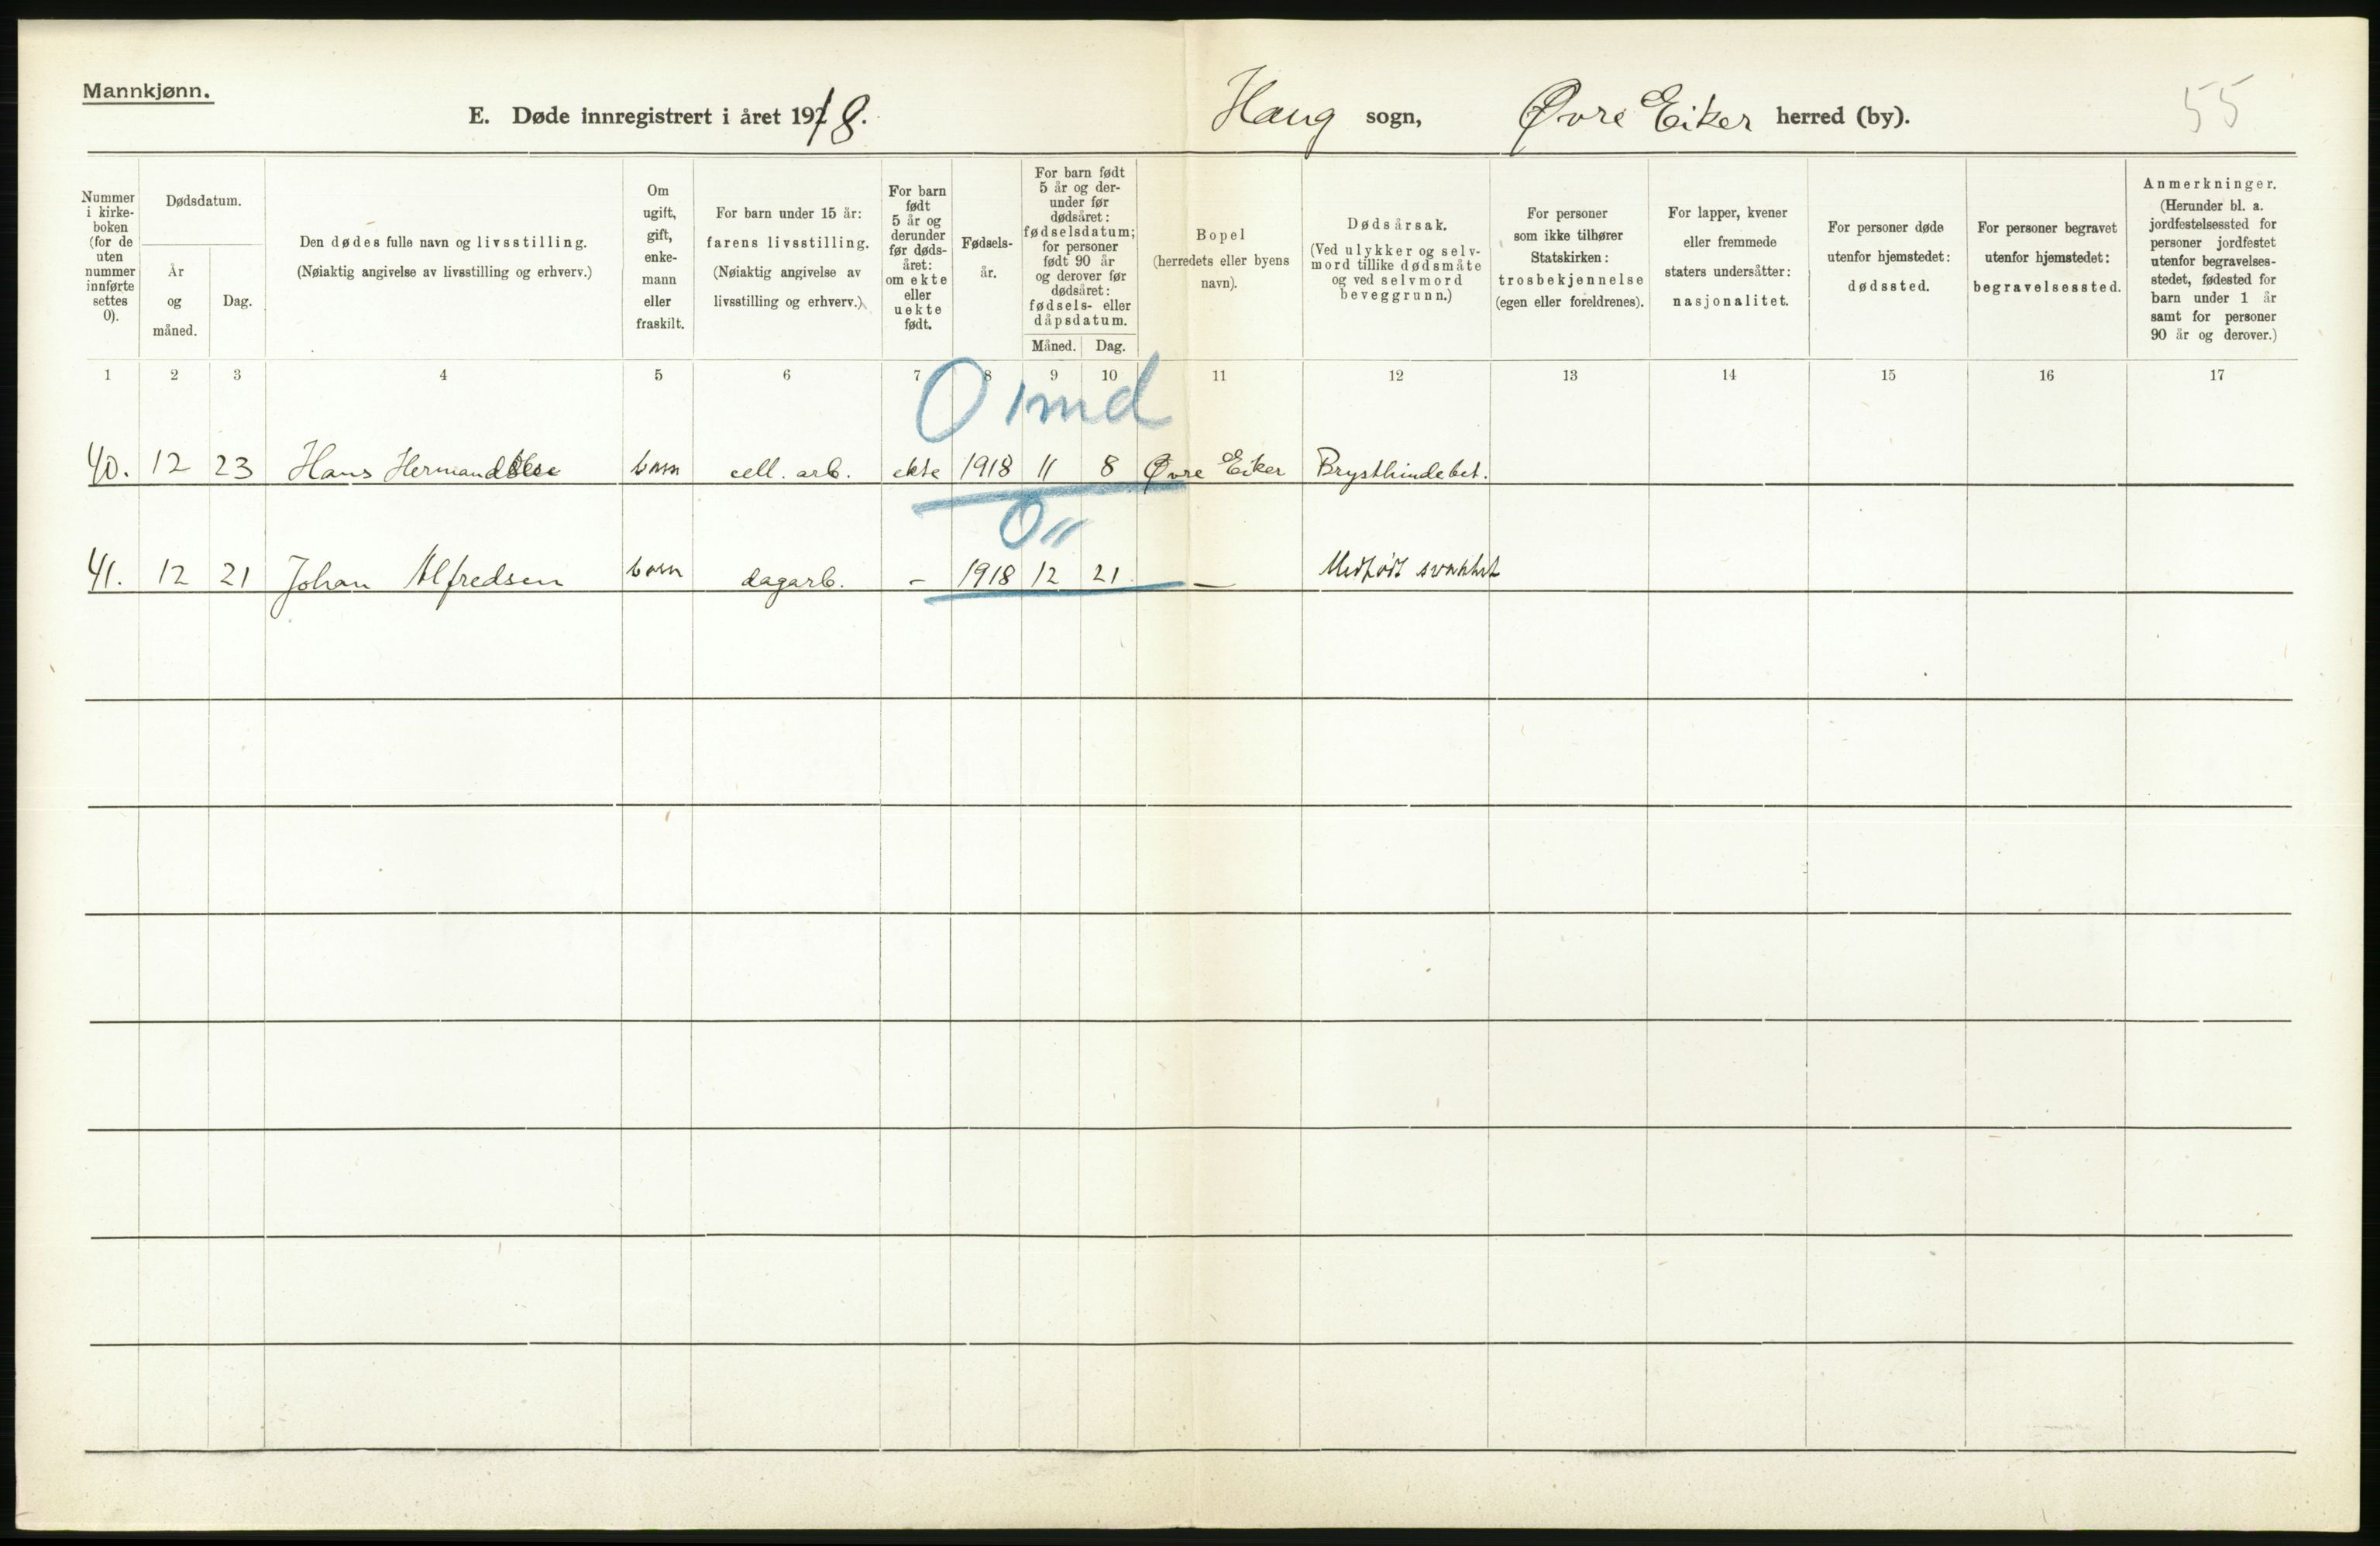 Mannkjønn.
E. Døde innregistrert i året 1918.
Haug sogn, Øvre Eiker herred (by).
55
Nummer
i kirke-
boken
(for de
uten
nummer
innførte
settes
0).
Dødsdatum.
År
og
måned.
Dag.
Den dødes fulle navn og livsstilling.
(Nøiaktig angivelse av livsstilling og erhverv.)
Om
ugift,
gift,
enke-
mann
eller
fraskilt.
For barn under 15 år:
farens livsstilling.
(Nøiaktig angivelse av
livsstilling og erhverv.)
For barn
født
5 år og
derunder
før døds-
året:
om ekte
eller
uekte
født.
Fødsels-
år.
For barn født
5 år og der-
under før
dødsåret:
fødselsdatum;
for personer
født 90 år
og derover før
dødsåret:
fødsels- eller
dåpsdatum.
Måned. Dag.
Bopel
(herredets eller byens
navn).
Dødsårsak.
(Ved ulykker og selv-
mord tillike dødsmåte
og ved selvmord
beveggrunn.)
For personer
som ikke tilhører
Statskirken:
trosbekjennelse
(egen eller foreldrenes).
For lapper, kvener
eller fremmede
staters undersåtter:
nasjonalitet.
For personer døde
utenfor hjemstedet:
dødssted.
For personer begravet
utenfor hjemstedet:
begravelsessted.
Anmerkninger.
(Herunder bl. a.
jordfestelsessted for
personer jordfestet
utenfor begravelses-
stedet, fødested for
barn under 1 år
samt for personer
90 år og derover.)
1 2 3 4 5 6 7 8 9 10 11 12 13 14 15 16 17
0 1 md
40. 12 23 Hans Herman barn cell. arb. ekte 1918 11 8 Øvre Eiker Brysthindebet.
0 "
41. 12 21 Johan Alfredsen barn dagarb. - 1918 12 21 — Medfødt svakhet